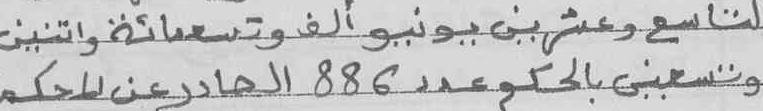 لتاسع وعشرين يونيو ألف وتسعمائة واتنين
وتسعين بالحكم عدد 886 الصادر عن المحكمـ